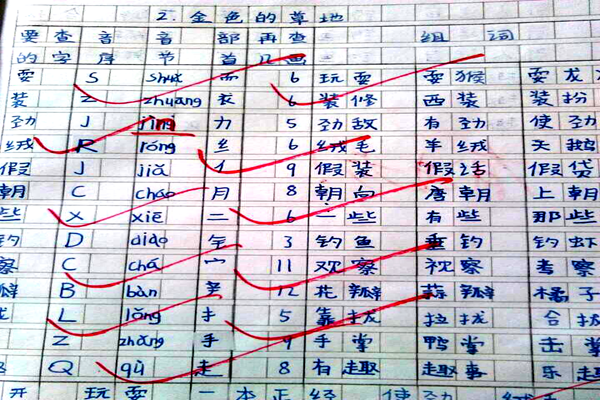 2.金色的草地
要查 音 音 部 再查 组 词
的字 序 节 首 几画
耍 S shuǎ 而 6 玩耍 耍猴 耍龙
装 Z zhuāng 衣 6 装修 西装 装扮
劲 J jìng 力 5 劲敌 有劲 使劲
绒 R róng 纟 6 绒毛 羊绒 天鹅
假 J jiǎ 亻 9 假装 假话 假贷
朝 C cháo 月 8 朝向 唐朝 上朝
些 X xiē 二 6 一些 有些 那些
钓 D diào 钅 3 钓鱼 垂钓 钓虾
察 C chá 宀 11 观察 视察 考察
瓣 B bàn 辛 12 花瓣 蒜瓣 橘子
拢 L lǒng 扌 5 靠拢 拉拢 合拢
Z zhǎng 手 9 手掌 鸭掌 击掌
Q qù 走 8 有趣 趣事 乐趣
开 玩耍 一本正经 使劲